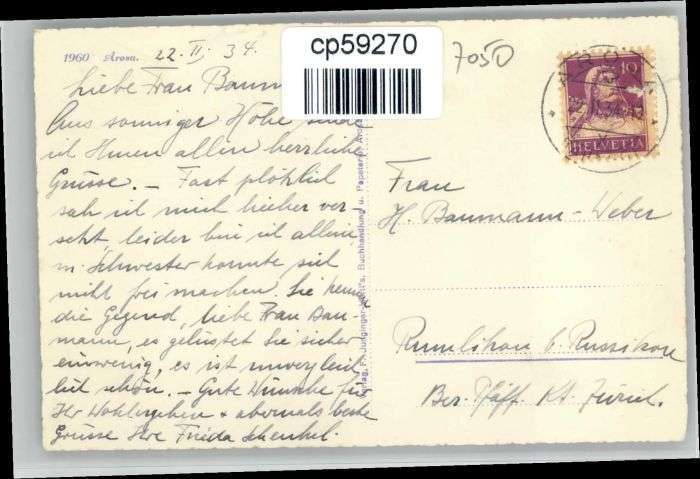 cp59270
7050
1960 Arosa. 22. II. 34.
Liebe Frau
Aus sonniger Höhe sende
ich Ihnen allen herzliche
Grüsse. – Fast plötzlich
sah ich mich hieher ver-
setzt, leider bin ich allein,
m. Schwester konnte sich
nicht frei machen. Sie kennen
die Gegend, liebe Frau Bau-
mann, es gelüstet Sie sicher
einwenig, es ist unvergleich
lich schön. – Gute Wünsche für
Ihr Wohlergehen + abermals beste
Grüsse Ihre Frieda Schenkel.
Buchhandlung u. Papeterie Arosa
10
HELVETIA
Frau
H. Baumann-Weber
Rumlikon b. Russikon
Bez. Pfäff. Kt. Zürich.